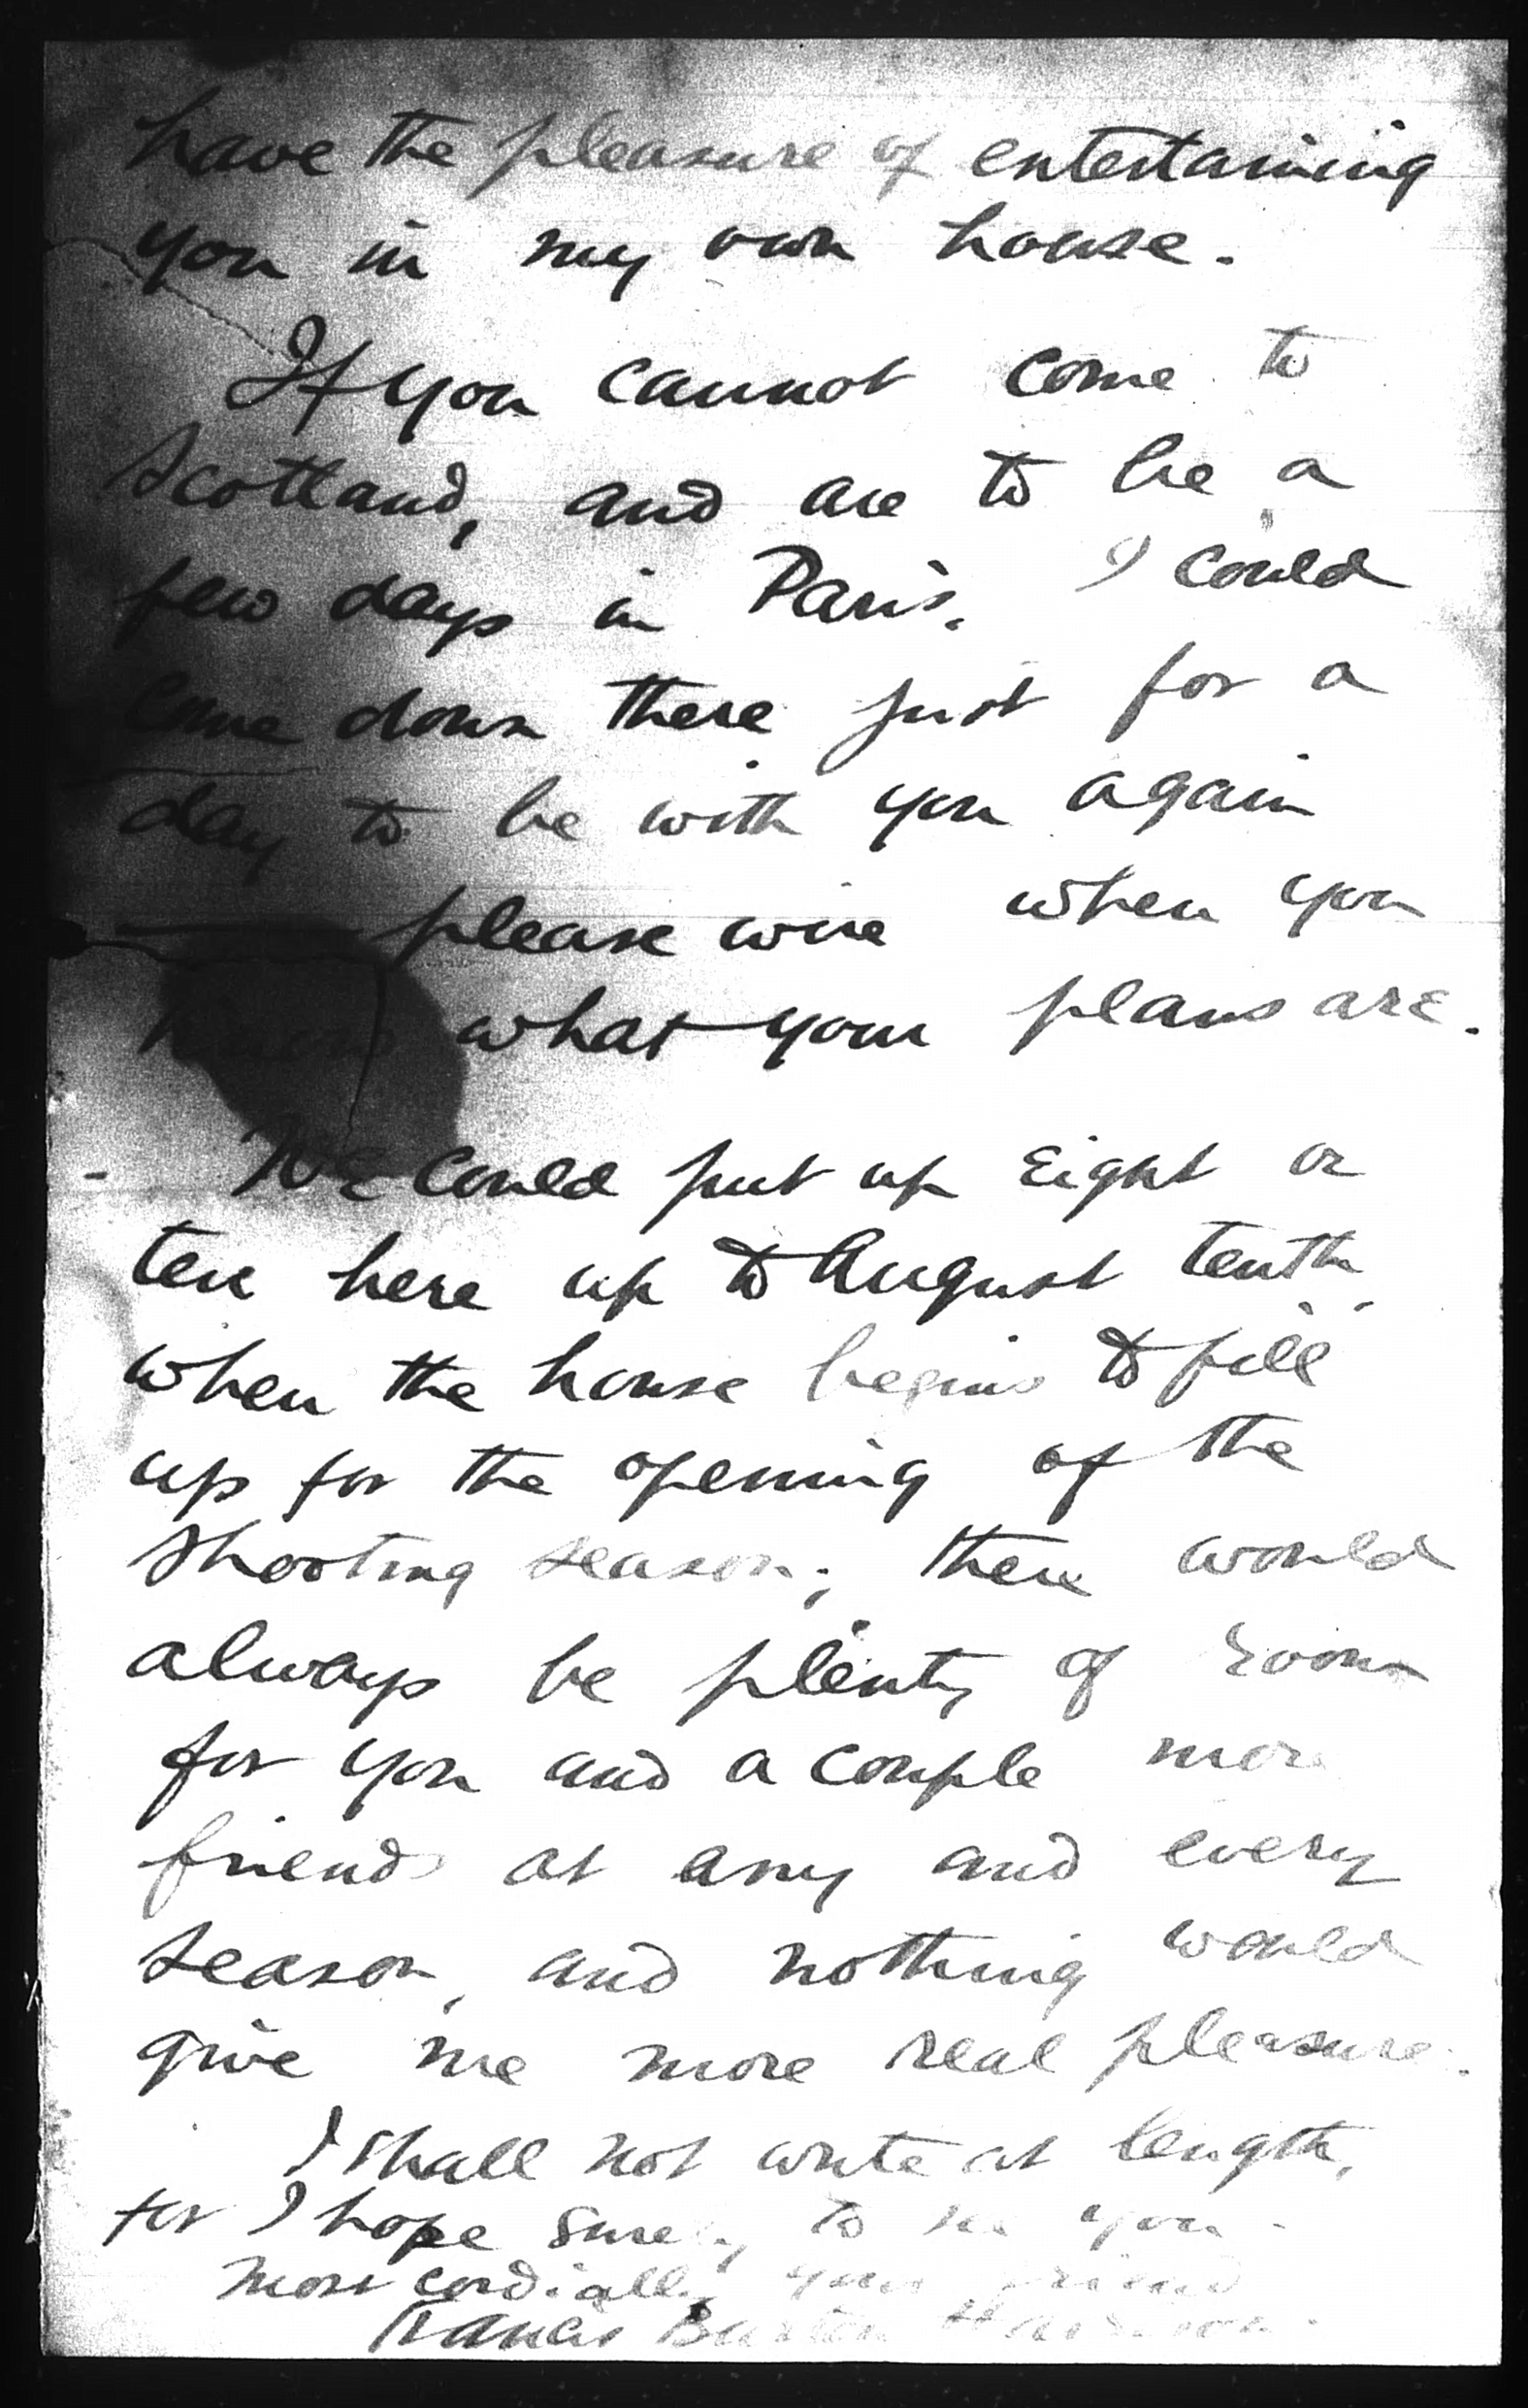 have the pleasure of entertaining
you in my own house.
If you cannot come to
Scotland, and are to be a
few days in Paris, I could
come down there just for a
day to be with you again
— please wire when you
know what your plans are.
We could put up eight or
ten here up to August tenth,
when the house begins to fill
up for the opening of the
shooting season; there would
always be plenty of room
for you and a couple more
friends at any and every
season, and nothing would
give me more real pleasure.
I shall not write at length,
for I hope surely to see you.
Most cordially your friend
Francis Burton Harrison.